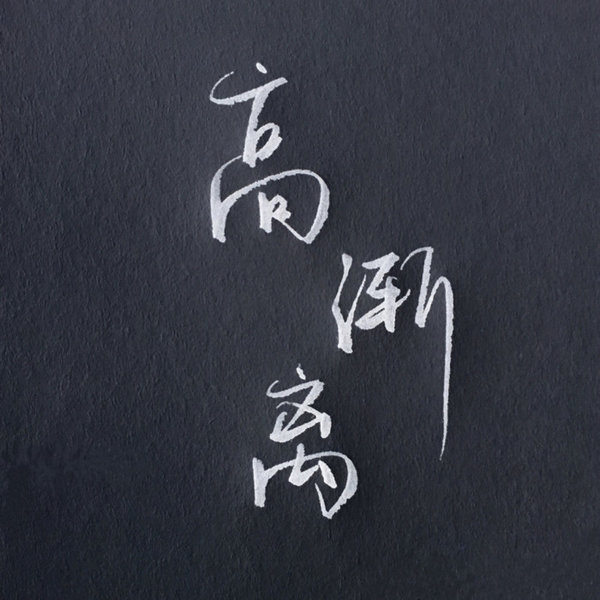 高
渐
离